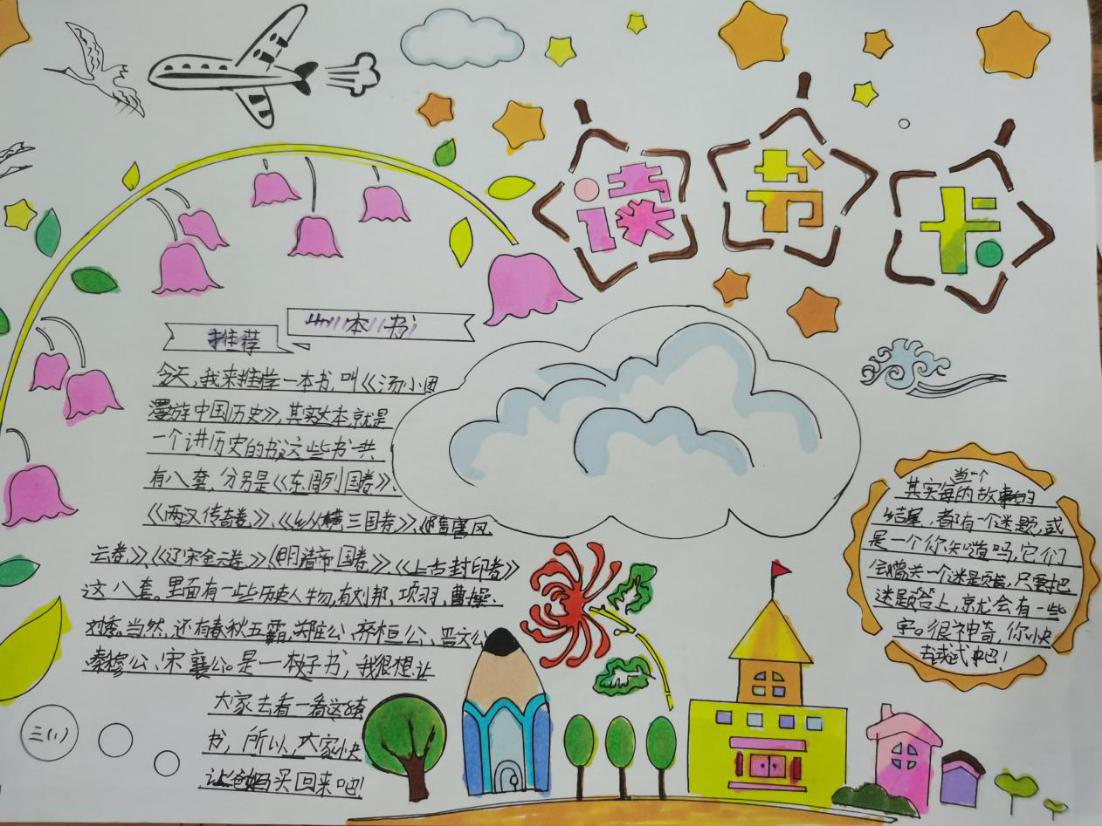 读书卡
推荐一本书
今天,我来推荐一本书,叫《汤小团
漫游中国历史》,其实这本就是
一个讲历史的书,这些书一共
有八套,分别是《东周列国卷》、
《两汉传奇卷》、《纵横三国卷》、《隋唐风
云卷》、《辽宋金元卷》《明清帝国卷》《上古封印卷》
这八套。里面有一些历史人物,有刘邦、项羽、曹操、
刘秀。当然,还有春秋五霸,郑庄公、齐桓公、晋文公、
秦穆公、宋襄公。是一本好书,我很想让
大家去看一看这
书,所以,大家快
让爸妈买回来吧!
当一个
其实每的故事的
结尾,都有一个迷题,或
是一个你知道吗,它们
会缺一个迷是答,只要把
迷题答上,京尤会有一些
字。很神奇,你快
去试试吧!
三(1)